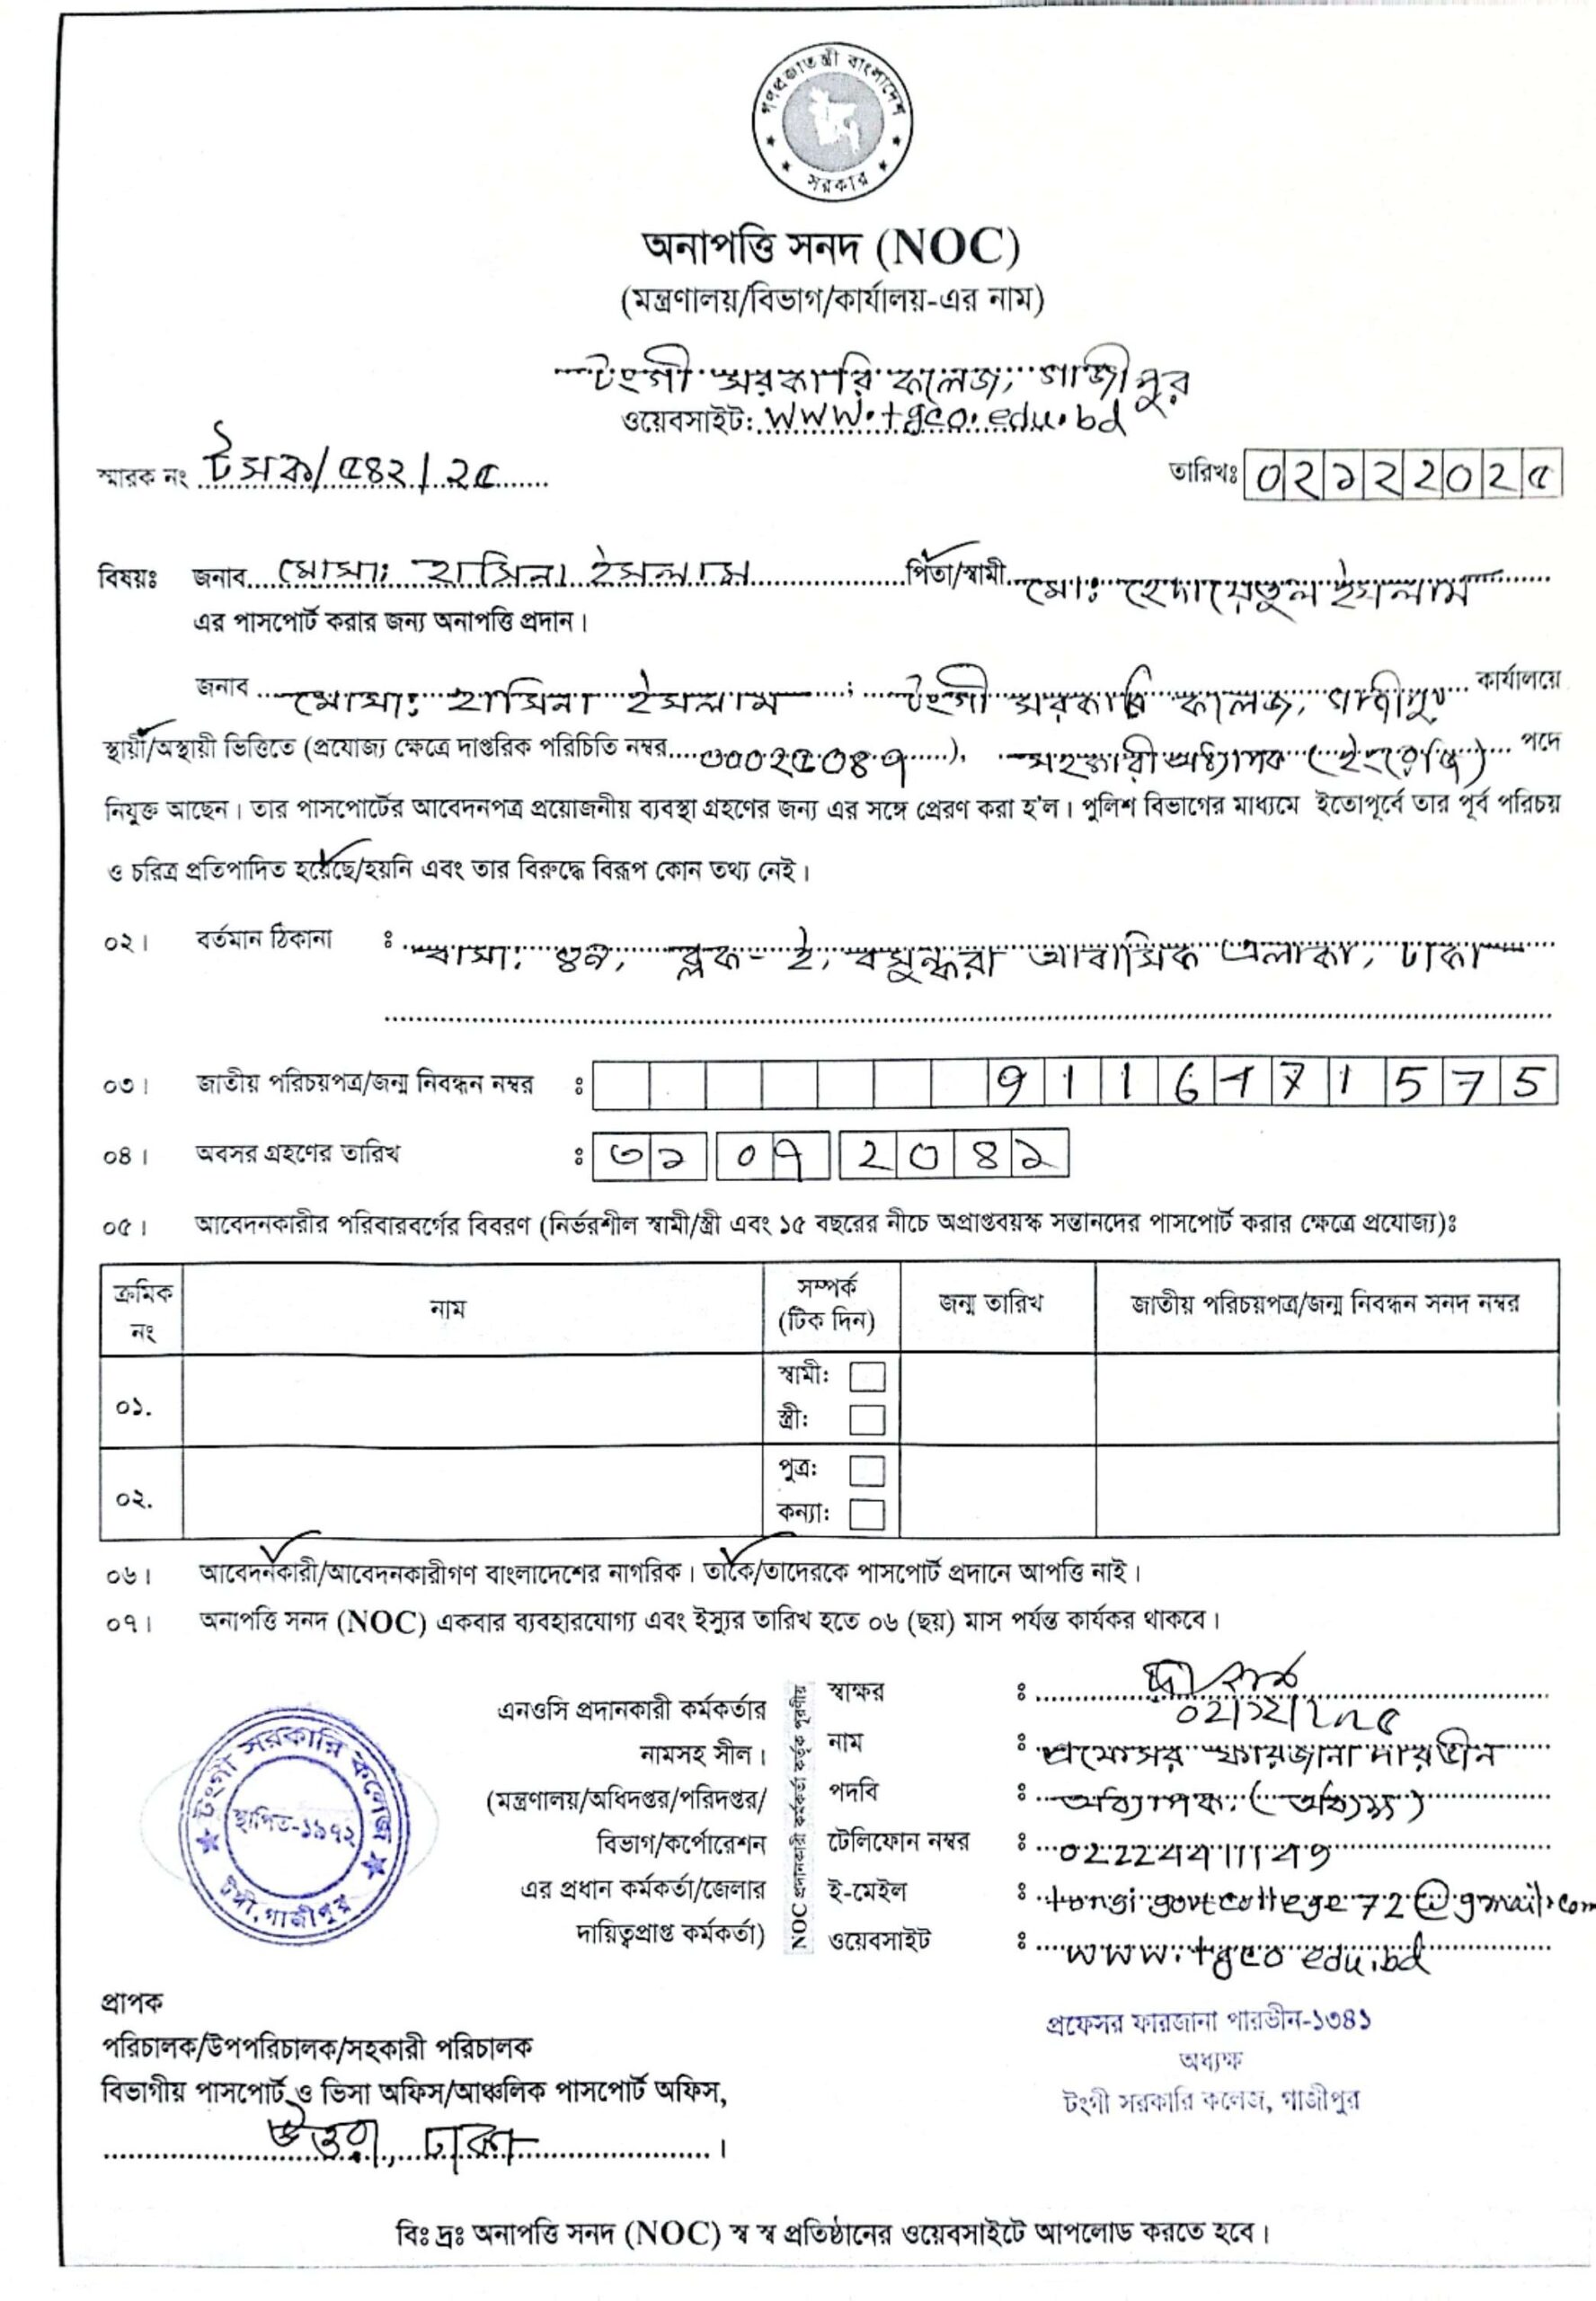 গণপ্রজাতন্ত্রী বাংলাদেশ
সরকার
অনাপত্তি সনদ (NOC)
(মন্ত্রণালয়/বিভাগ/কার্যালয়-এর নাম)
টংগী সরকারি কলেজ, গাজীপুর
ওয়েবসাইট: www.tgco.edu.bd
স্মারক নং টসক/৫৪২/২৫ তারিখঃ ০২১২২০২৫
বিষয়ঃ জনাব মোসা: হাসিনা ইসলাম পিতা/স্বামী মো: হেদায়েতুল ইসলাম
এর পাসপোর্ট করার জন্য অনাপত্তি প্রদান।
জনাব মোসা: হাসিনা ইসলাম ; টংগী সরকারি কলেজ, গাজীপুর কার্যালয়ে
স্থায়ী/অস্থায়ী ভিত্তিতে (প্রযোজ্য ক্ষেত্রে দাপ্তরিক পরিচিতি নম্বর ০০০২৫০৪৭), সহকারী অধ্যাপক (ইংরেজি) পদে
নিযুক্ত আছেন। তার পাসপোর্টের আবেদনপত্র প্রয়োজনীয় ব্যবস্থা গ্রহণের জন্য এর সঙ্গে প্রেরণ করা হ'ল। পুলিশ বিভাগের মাধ্যমে ইতোপূর্বে তার পূর্ব পরিচয়
ও চরিত্র প্রতিপাদিত হয়েছে/হয়নি এবং তার বিরুদ্ধে বিরূপ কোন তথ্য নেই।
০২। বর্তমান ঠিকানা ঃ বাসা: ব্লক- ই, বসুন্ধরা আবাসিক এলাকা, ঢাকা
০৩। জাতীয় পরিচয়পত্র/জন্ম নিবন্ধন নম্বর ঃ 9116471575
০৪। অবসর গ্রহণের তারিখ ঃ ৩১ ০৭ ২০৪১
০৫। আবেদনকারীর পরিবারবর্গের বিবরণ (নির্ভরশীল স্বামী/স্ত্রী এবং ১৫ বছরের নীচে অপ্রাপ্তবয়স্ক সন্তানদের পাসপোর্ট করার ক্ষেত্রে প্রযোজ্য)ঃ
ক্রমিক নং নাম সম্পর্ক (টিক দিন) জন্ম তারিখ জাতীয় পরিচয়পত্র/জন্ম নিবন্ধন সনদ নম্বর
০১. স্বামী:
স্ত্রী:
০২. পুত্র:
কন্যা:
০৬। আবেদনকারী/আবেদনকারীগণ বাংলাদেশের নাগরিক। তাকে/তাদেরকে পাসপোর্ট প্রদানে আপত্তি নাই।
০৭। অনাপত্তি সনদ (NOC) একবার ব্যবহারযোগ্য এবং ইস্যুর তারিখ হতে ০৬ (ছয়) মাস পর্যন্ত কার্যকর থাকবে।
টংগী সরকারি কলেজ
স্থাপিত-১৯৭২
টঙ্গী, গাজীপুর
এনওসি প্রদানকারী কর্মকর্তার
নামসহ সীল।
(মন্ত্রণালয়/অধিদপ্তর/পরিদপ্তর/
বিভাগ/কর্পোরেশন
এর প্রধান কর্মকর্তা/জেলার
দায়িত্বপ্রাপ্ত কর্মকর্তা)
NOC প্রদানকারী কর্মকর্তা কর্তৃক পূরণীয়
স্বাক্ষর ঃ
০২/১২/২০২৫
নাম ঃ প্রফেসর ফারজানা পারভীন
পদবি ঃ অধ্যাপক (অধ্যক্ষ)
টেলিফোন নম্বর ঃ
ই-মেইল ঃ tongi govt college 72@gmail.com
ওয়েবসাইট ঃ www.tgco edu.bd
প্রফেসর ফারজানা পারভীন-১৩৪১
অধ্যক্ষ
টংগী সরকারি কলেজ, গাজীপুর
প্রাপক
পরিচালক/উপপরিচালক/সহকারী পরিচালক
বিভাগীয় পাসপোর্ট ও ভিসা অফিস/আঞ্চলিক পাসপোর্ট অফিস,
উত্তরা, ঢাকা।
বিঃ দ্রঃ অনাপত্তি সনদ (NOC) স্ব স্ব প্রতিষ্ঠানের ওয়েবসাইটে আপলোড করতে হবে।